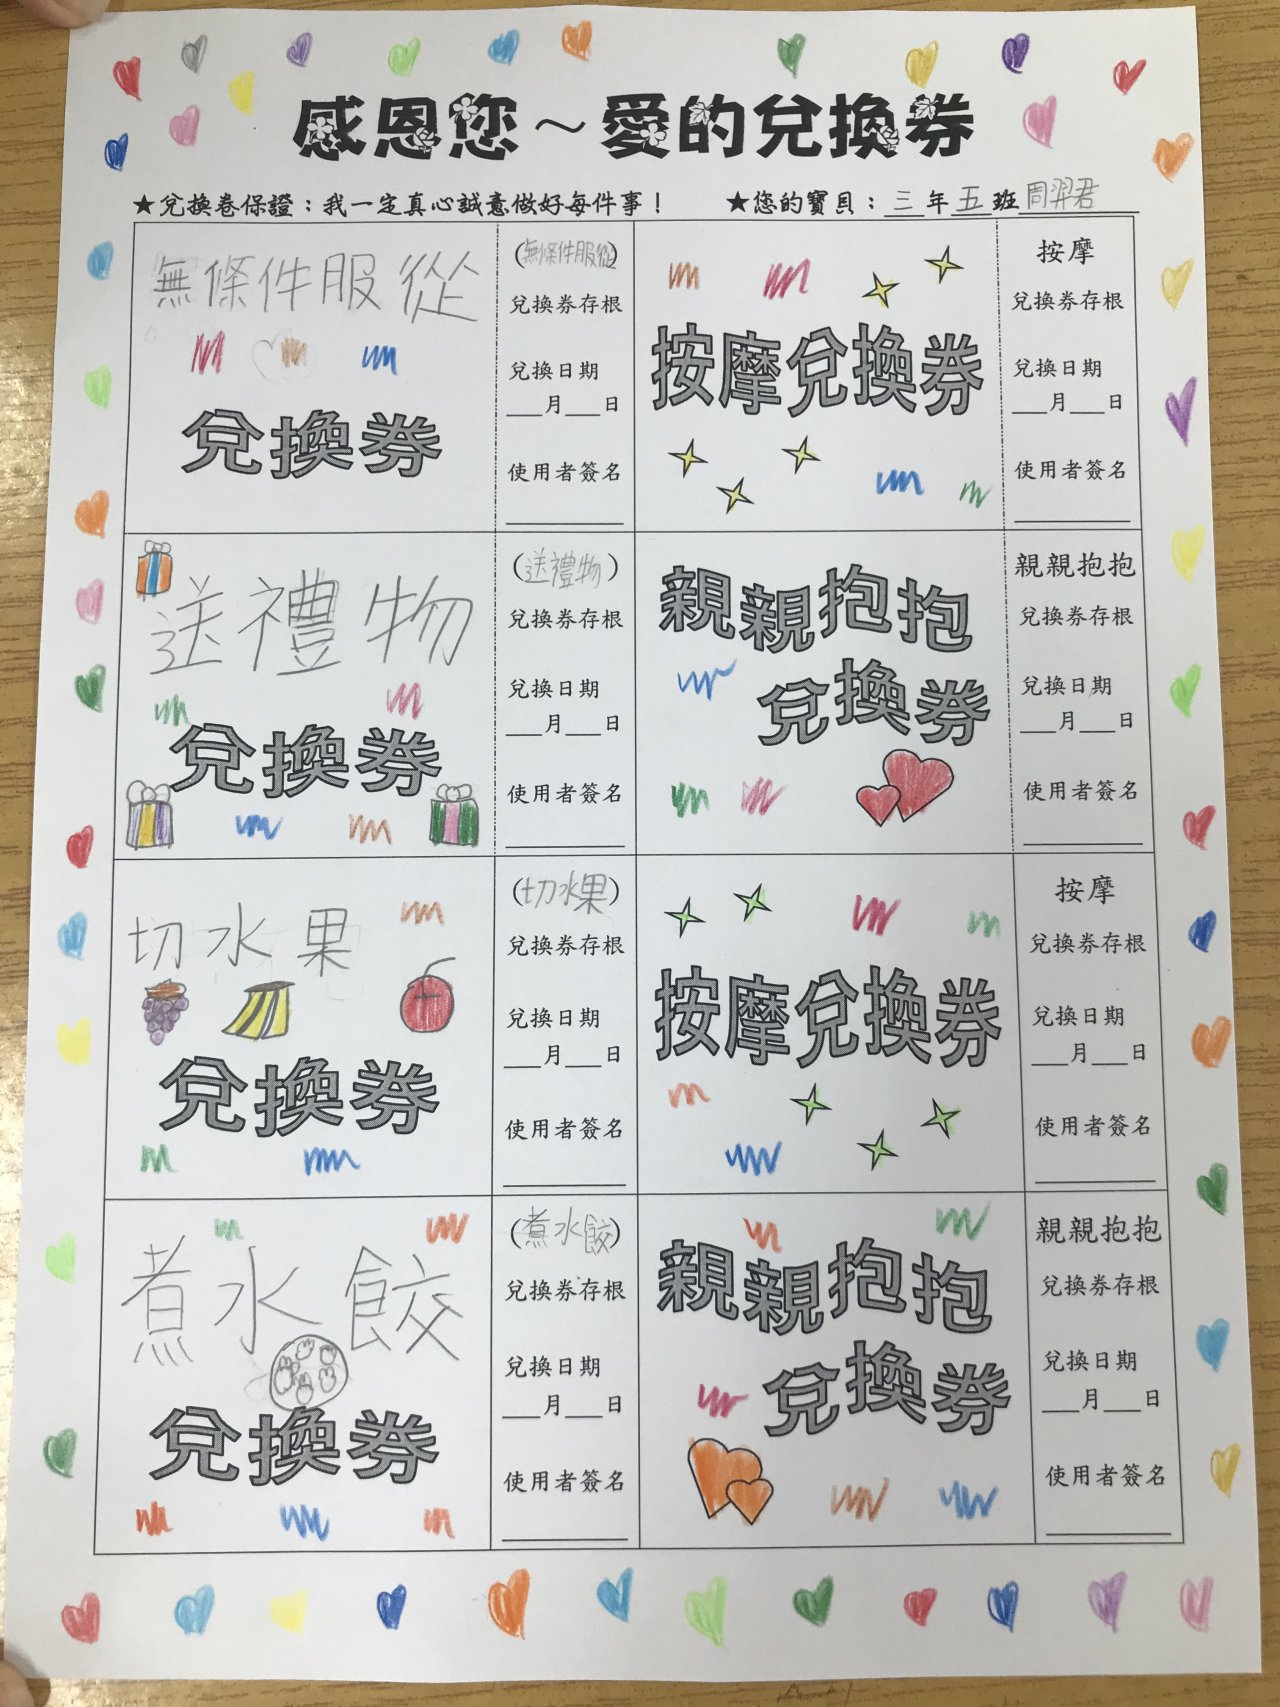 感恩您～愛的兌換券
★兌換卷保證：我一定真心誠意做好每件事！ ★您的寶貝：三年五班周羿君
無條件服從
兌換券
(無條件服從)
兌換券存根
兌換日期
___月___日
使用者簽名
按摩兌換券
按摩
兌換券存根
兌換日期
___月___日
使用者簽名
送禮物
兌換券
(送禮物)
兌換券存根
兌換日期
___月___日
使用者簽名
親親抱抱
兌換券
親親抱抱
兌換券存根
兌換日期
___月___日
使用者簽名
切水果
兌換券
(切水果)
兌換券存根
兌換日期
___月___日
使用者簽名
按摩兌換券
按摩
兌換券存根
兌換日期
___月___日
使用者簽名
煮水餃
兌換券
(煮水餃)
兌換券存根
兌換日期
___月___日
使用者簽名
親親抱抱
兌換券
親親抱抱
兌換券存根
兌換日期
___月___日
使用者簽名